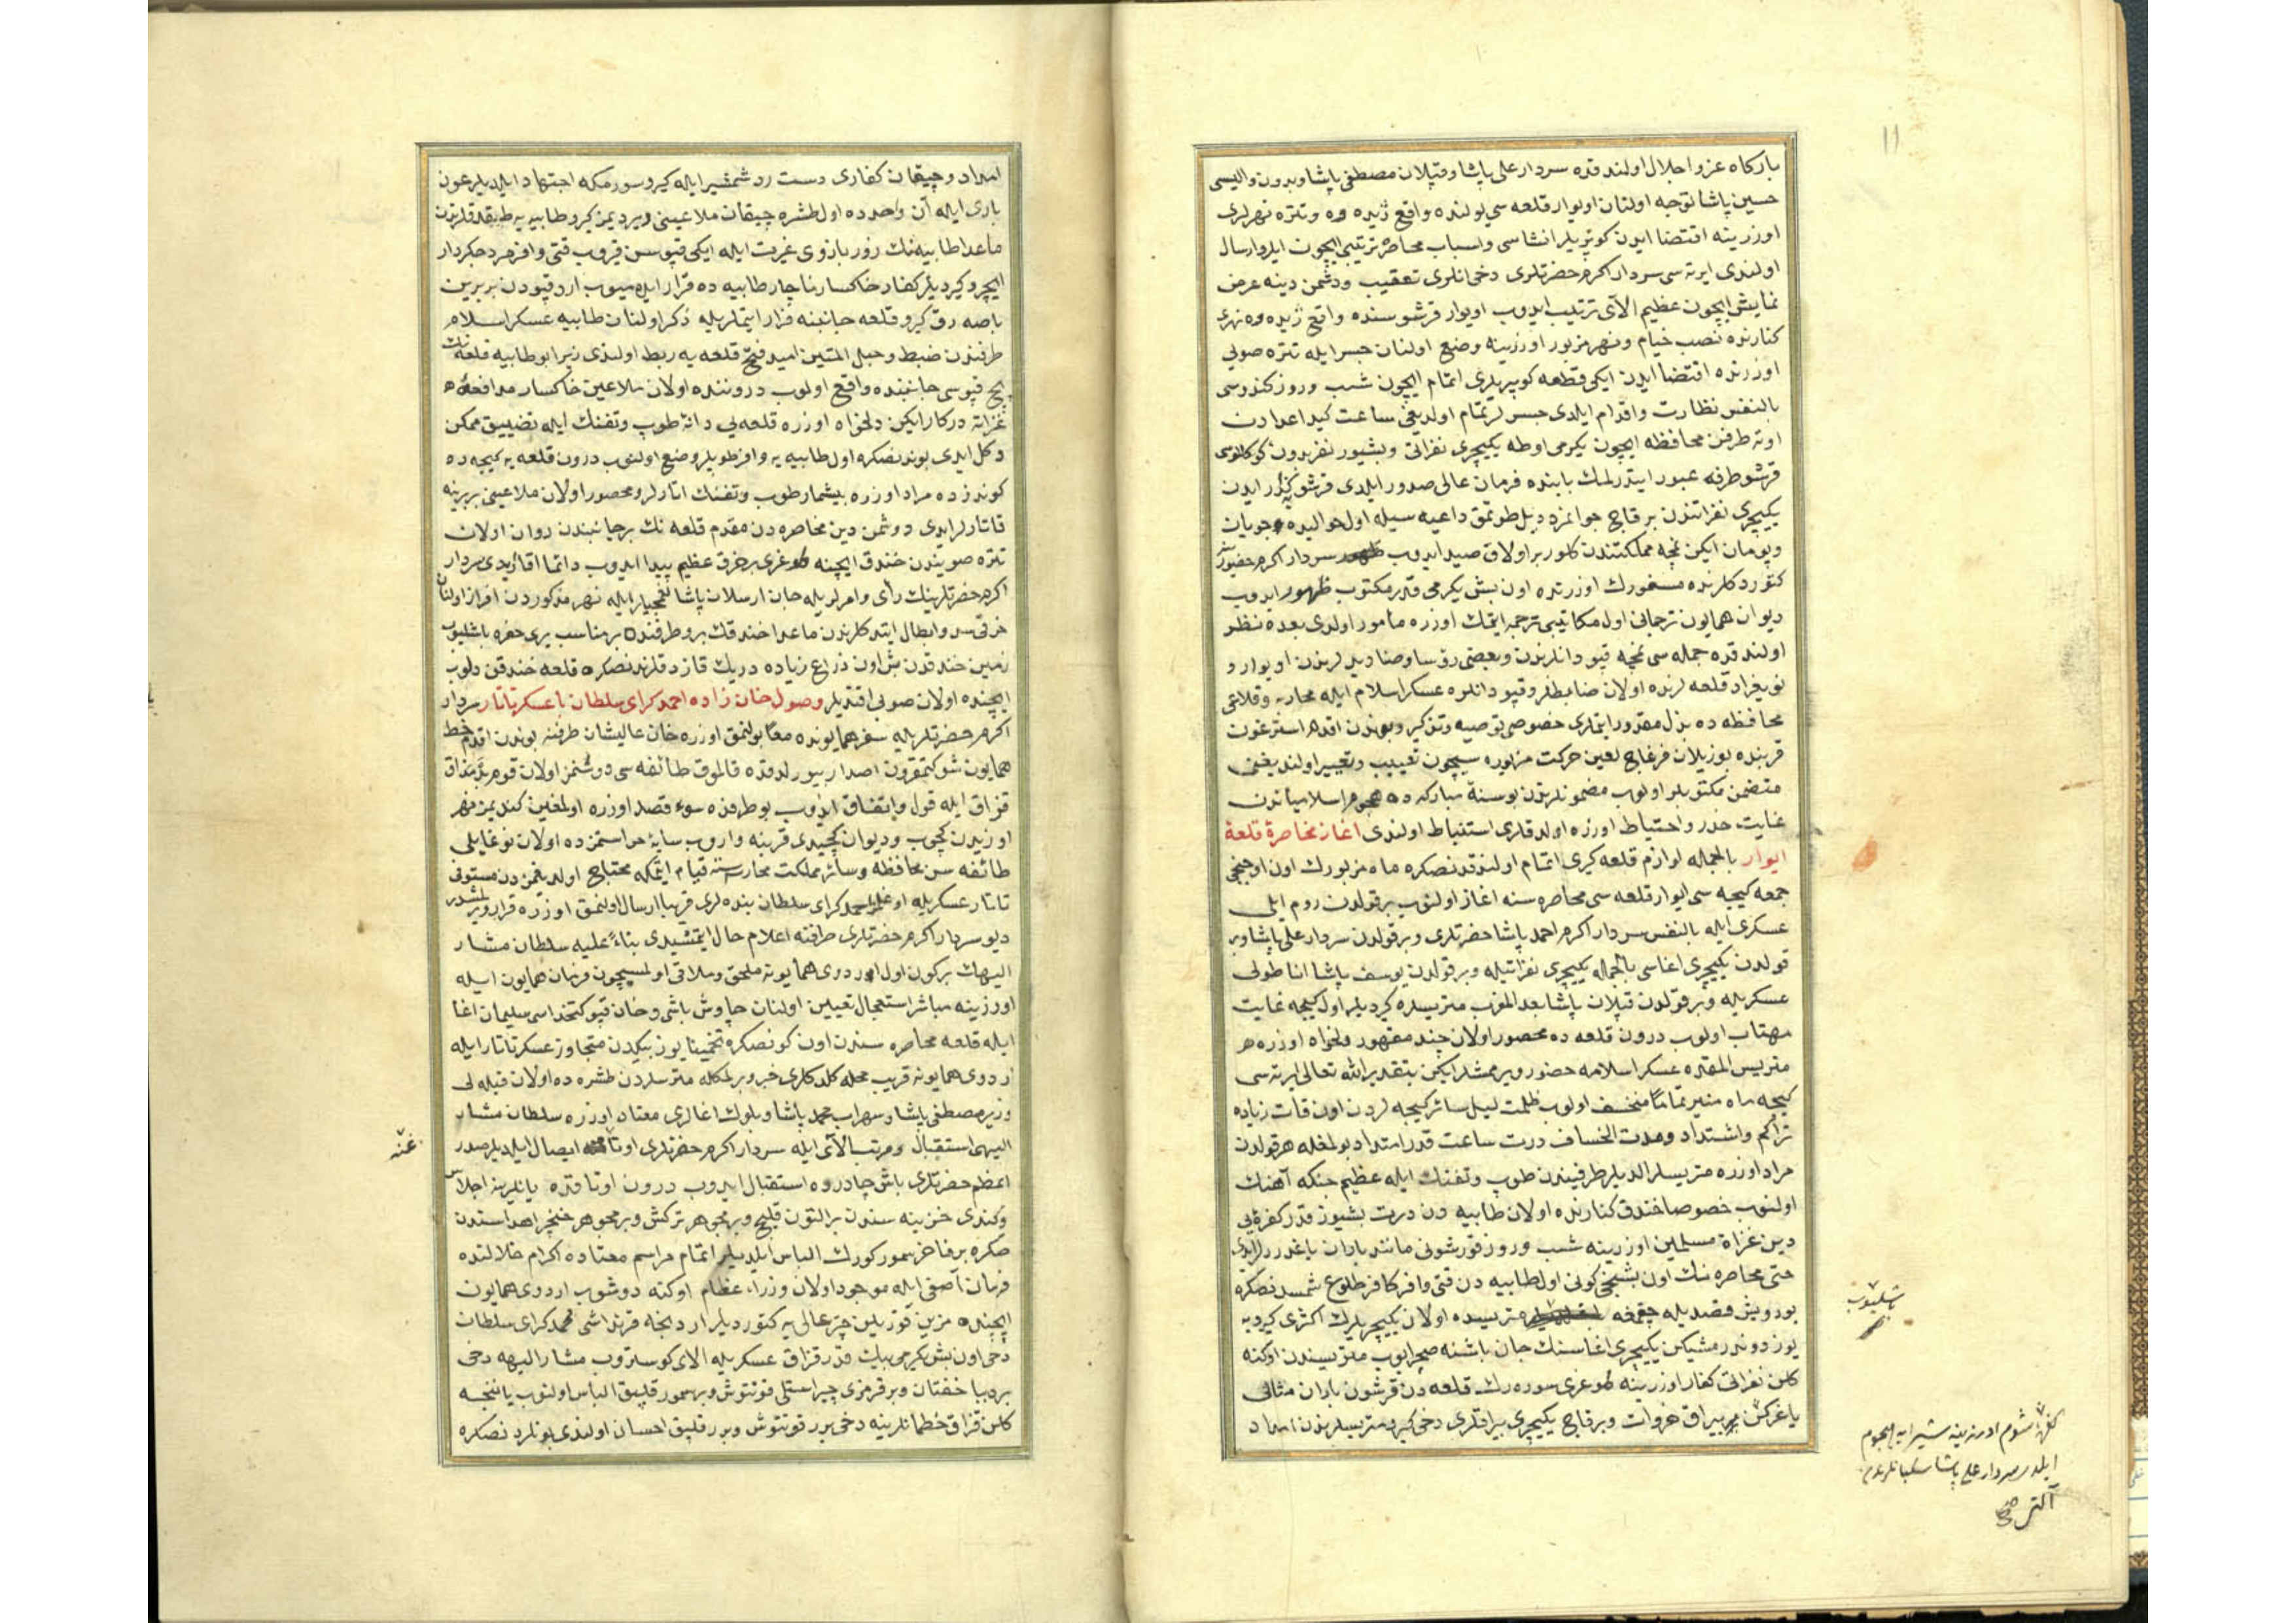 ۱۱
باركاه عز و اجلال اولندقده سردار علی پاشا و قپلان مصطفی پاشا و بدون والیسی
حسین پاشا توجه اولنان اویوار قلعه سی یولنده واقع ژیده وه و تتره نهرلری
اوزرینه اقتضا ایدن كوپریلر انشاسی و اسباب محاصره ترتیبی ایچون ایلرو ارسال
اولندی ایرته سی سردار اكرم حضرتلری دخی انلری تعقیب و دشمن دینه عرض
نمایش ایچون عظیم الای ترتیب ایدوب اویوار قرشوسنده واقع ژیده وه نهری
كنارنده نصب خیام و نهر مزبور اوزرینه وضع اولنان جسر ایله تتره صویی
اوزرنده اقتضا ایدن ایكی قطعه كوپریلری اتمام ایچون شب و روز كندوسی
بالنفس نظارت و اقدام ایلدی جسرلر تمام اولدیغی ساعت كید اعدادن
اوته طرفن محافظه ایچون یكرمی اوطه یكیچری نفراتی و بشیوز نفر بدون كوكللوسی
قرشو طرفه عبور ایتدرلمك بابنده فرمان عالی صدور ایلدی قرشو كذر ایدن
یكیچری نفراتندن بر قاچ جوانمرد دیل طوتمق داعیه سیله اول حوالیده جویان
و پویان ایكن نمچه مملكتندن كلور بر اولاق صید ایدوب سردار اكرم حضورینه
كتوردكلرنده مسفورك اوزرنده اون بش یكرمی قدر مكتوب ظهور ایدوب
دیوان همایون ترجمانی اول مكاتیبی ترجمه ایتمك اوزره مأمور اولدی بعده نظر
اولندقده جمله سی نمچه قپودانلرندن و بعضی رؤسا و صنادیدلرندن اویوار و
نویغراد قلعه لرنده اولان ضابطلر و قپودانلره عسكر اسلام ایله محاربه و قلاعی
محافظه ده بذل مقدور ایتملری خصوصی توصیه و تذكیر و بوندن اقدم استرغون
قربنده بوزیلان فرغاچ لعین حركت مزبوره سیچون تعییب و تعییر اولندیغنی
متضمن مكتوبلر اولوب مضمونلرندن بو سنهٔ مباركه ده هجوم اسلامیاندن
غایت حذر و احتیاط اوزره اولدقلری استنباط اولندی اغاز محاصرهٔ قلعهٔ
ایوار بالجمله لوازم قلعه كیری اتمام اولندقدنصكره ماه مزبورك اون اوچنجی
جمعه كیجه سی ایوار قلعه سی محاصره سنه اغاز اولنوب بر قولدن روم ایلی
عسكری ایله بالنفس سردار اكرم احمد پاشا حضرتلری و بر قولدن سردار علی پاشا و بر
قولدن یكیچری اغاسی بالجمله یكیچری نفراتیله و بر قولدن یوسف پاشا اناطولی
عسكریله و بر قولدن قپلان پاشا بعد المغرب متریسلره كیردیلر اول كیجه غایت
مهتاب اولوب درون قلعه ده محصور اولان چند مقهور دلخواه اوزره هر
متریس المقده عسكر اسلامه حضور ویرمشلر ایكن بتقدیر الله تعالی ایرته سی
كیجه ماه منیر تمامًا منخسف اولوب ظلمت لیل سائر كیجه لردن اون قات زیاده
تراكم و اشتداد و مدت انخساف درت ساعت قدر امتداد بولمغله هر قولدن
مراد اوزره متریسلر الدیلر طرفیندن طوپ و تفنك ایله عظیم جنكه آهنك
اولنوب خصوصا خندق كنارنده اولان طابیه دن درت بشیوز قدر كفرهٔ بی
دین غزاة مسلمین اوزرینه شب و روز قورشونی مانند باران یاغدررلر ایدی
حتی محاصره نك اون بشنجی كونی اول طابیه دن قتی وافر كافر طلوع شمسدنصكره
یورویش قصدیله چقمغه متریسده اولان یكیچریلرك اكثری كیرویه
یوز دوندرمشیكن یكیچری اغاسنك جان باشنه صچرایوب متریسندن اوكنه
كلن نفراتی كفار اوزرینه طوغری سوره رك قلعه دن قورشون باران مثالی
یاغركن بر بیراق غزوات و بر قاچ یكیچری بیراقلری دخی كیرو متریسلرندن امداد
باشلیوب
كفرهٔ شوم اوزرینه شیرانه هجوم
ایلدی سردار علی پاشا سكبانلرندن
صح
امداد و چیقان كفاری دست رد شمشیر ایله كیرو سورمكه اجتهاد ایلدیلر عون
باری ایله آن واحدده اول طشره چیقان ملاعینی ویردیمز كیرو طابیه یه طیقدقلرندن
ماعدا طابیه نك زور بازوی غیرت ایله ایكی قپوسن قیروب قتی وافر مرد جكردار
ایچرو كیردیلر كفار خاكسار ناچار طابیه ده قرار ایده میوب ارد قپودن بربرین
باصه رق كیرو قلعه جانبنه فرار ایتملریله ذكر اولنان طابیه عسكر اسلام
طرفندن ضبط و حبل المتین امید فتح قلعه یه ربط اولندی زیرا بو طابیه قلعه نك
پچ قپوسی جانبنده واقع اولوب دروننده اولان ملاعین خاكسار مدافعهٔ
غزاته دركار ایكن دلخواه اوزره قلعه یی دانهٔ طوپ و تفنك ایله تضییق ممكن
دكل ایدی بوندنصكره اول طابیه یه وافر طوپلر وضع اولنوب درون قلعه یه كیجه ده
كوندزده مراد اوزره بیشمار طوپ و تفنك اتارلر و محصور اولان ملاعینی بربرینه
قاتارلر ایدی دوشمن دین محاصره دن مقدم قلعه نك بر جانبندن روان اولان
تتره صویندن خندق ایچنه طوغری بر خرق عظیم پیدا ایدوب دائما اقار ایدی سردار
اكرم حضرتلرینك رأی و امرلریله جان ارسلان پاشا لغمجیلر ایله نهر مذكوردن افراز اولنان
خرقی سد و ابطال ایتدكلرندن ماعدا خندقك برو طرفنده بر مناسب یری حفره باشلیوب
زمین خندقدن بش اون ذراع زیاده درینك قازدقلرندنصكره قلعه خندقن دلوب
ایچنده اولان صویی اقتدیلر وصول خان زاده احمد كرای سلطان با عسكر تاتار سردار
اكرم حضرتلریله سفر همایونده معًا بولنمق اوزره خان عالیشان طرفنه بوندن اقدم خط
همایون شوكتمقرون اصدار بیورلدقده قالموق طائفه سی دوشمنز اولان قوم بدمذاق
قزاق ایله قول و اتفاق ایدوب بو طرفده سوء قصد اوزره اولمغین كندیمز نهر
اوزیدن كچوب و دیوان كچیدی قربنه واروب سایهٔ حراستمزده اولان نوغایلی
طائفه سن محافظه و سائر مملكت محارسه سنه قیام ایتمكه محتاج اولدیغمزدن مستوفی
تاتار عسكریله اوغلم احمد كرای سلطان بنده لری قریبا ارسال اولنمق اوزره قرار ویرلمشدر
دیو سردار اكرم حضرتلری طرافنه اعلام حال ایتمشیدی بناءً علیه سلطان مشار
الیهك بر كون اول اوردوی همایونه ملحق و ملاقی اولمسیچون فرمان همایون ایله
اوزرینه مباشر استعجال تعیین اولنان چاوش باشی و خان قپو كتخداسی سلیمان اغا
ایله قلعه محاصره سندن اون كونصكره تخمینا یوز بیكدن متجاوز عسكر تاتار ایله
اردوی همایونه قریب محله كلدكلری خبر ویرلمكله متریسلردن طشره ده اولان قبه لی
وزیر مصطفی پاشا و سهراب محمد پاشا و بلوك اغالری معتاد اوزره سلطان مشار
الیهی استقبال و مرتب الای ایله سردار اكرم حضرتلری اوتاغنه ایصال ایلدیلر صدر
اعظم حضرتلری باش چادروه استقبال ایدوب درون اوتاقده یانلرینه اجلاس
و كندی خزینه سندن بر التون قلیچ و بر مجوهر تركش و بر مجوهر خنجر اهداسندن
صكره بر فاخر سمور كورك الباس ایلدیلر اتمام مراسم معتاده اكرام خلالنده
فرمان آصفی ایله موجود اولان وزراء عظام اوكنه دوشوب اردوی همایون
ایچنده مزین قوریلن چتر عالی یه كتوردیلر اردنجه قرنداشی محمد كرای سلطان
دخی اون بش یكرمی بیك قدر قزاق عسكریله الای كوستروب مشار الیهه دخی
بر دیبا خفتان و بر قرمزی چپراستلی قونتوش و بر سمور قلپاق الباس اولنوب یاننجه
كلن قزاق خطمانلرینه دخی برر قونتوش و برر قلپاق احسان اولندی بونلردنصكره
غنه